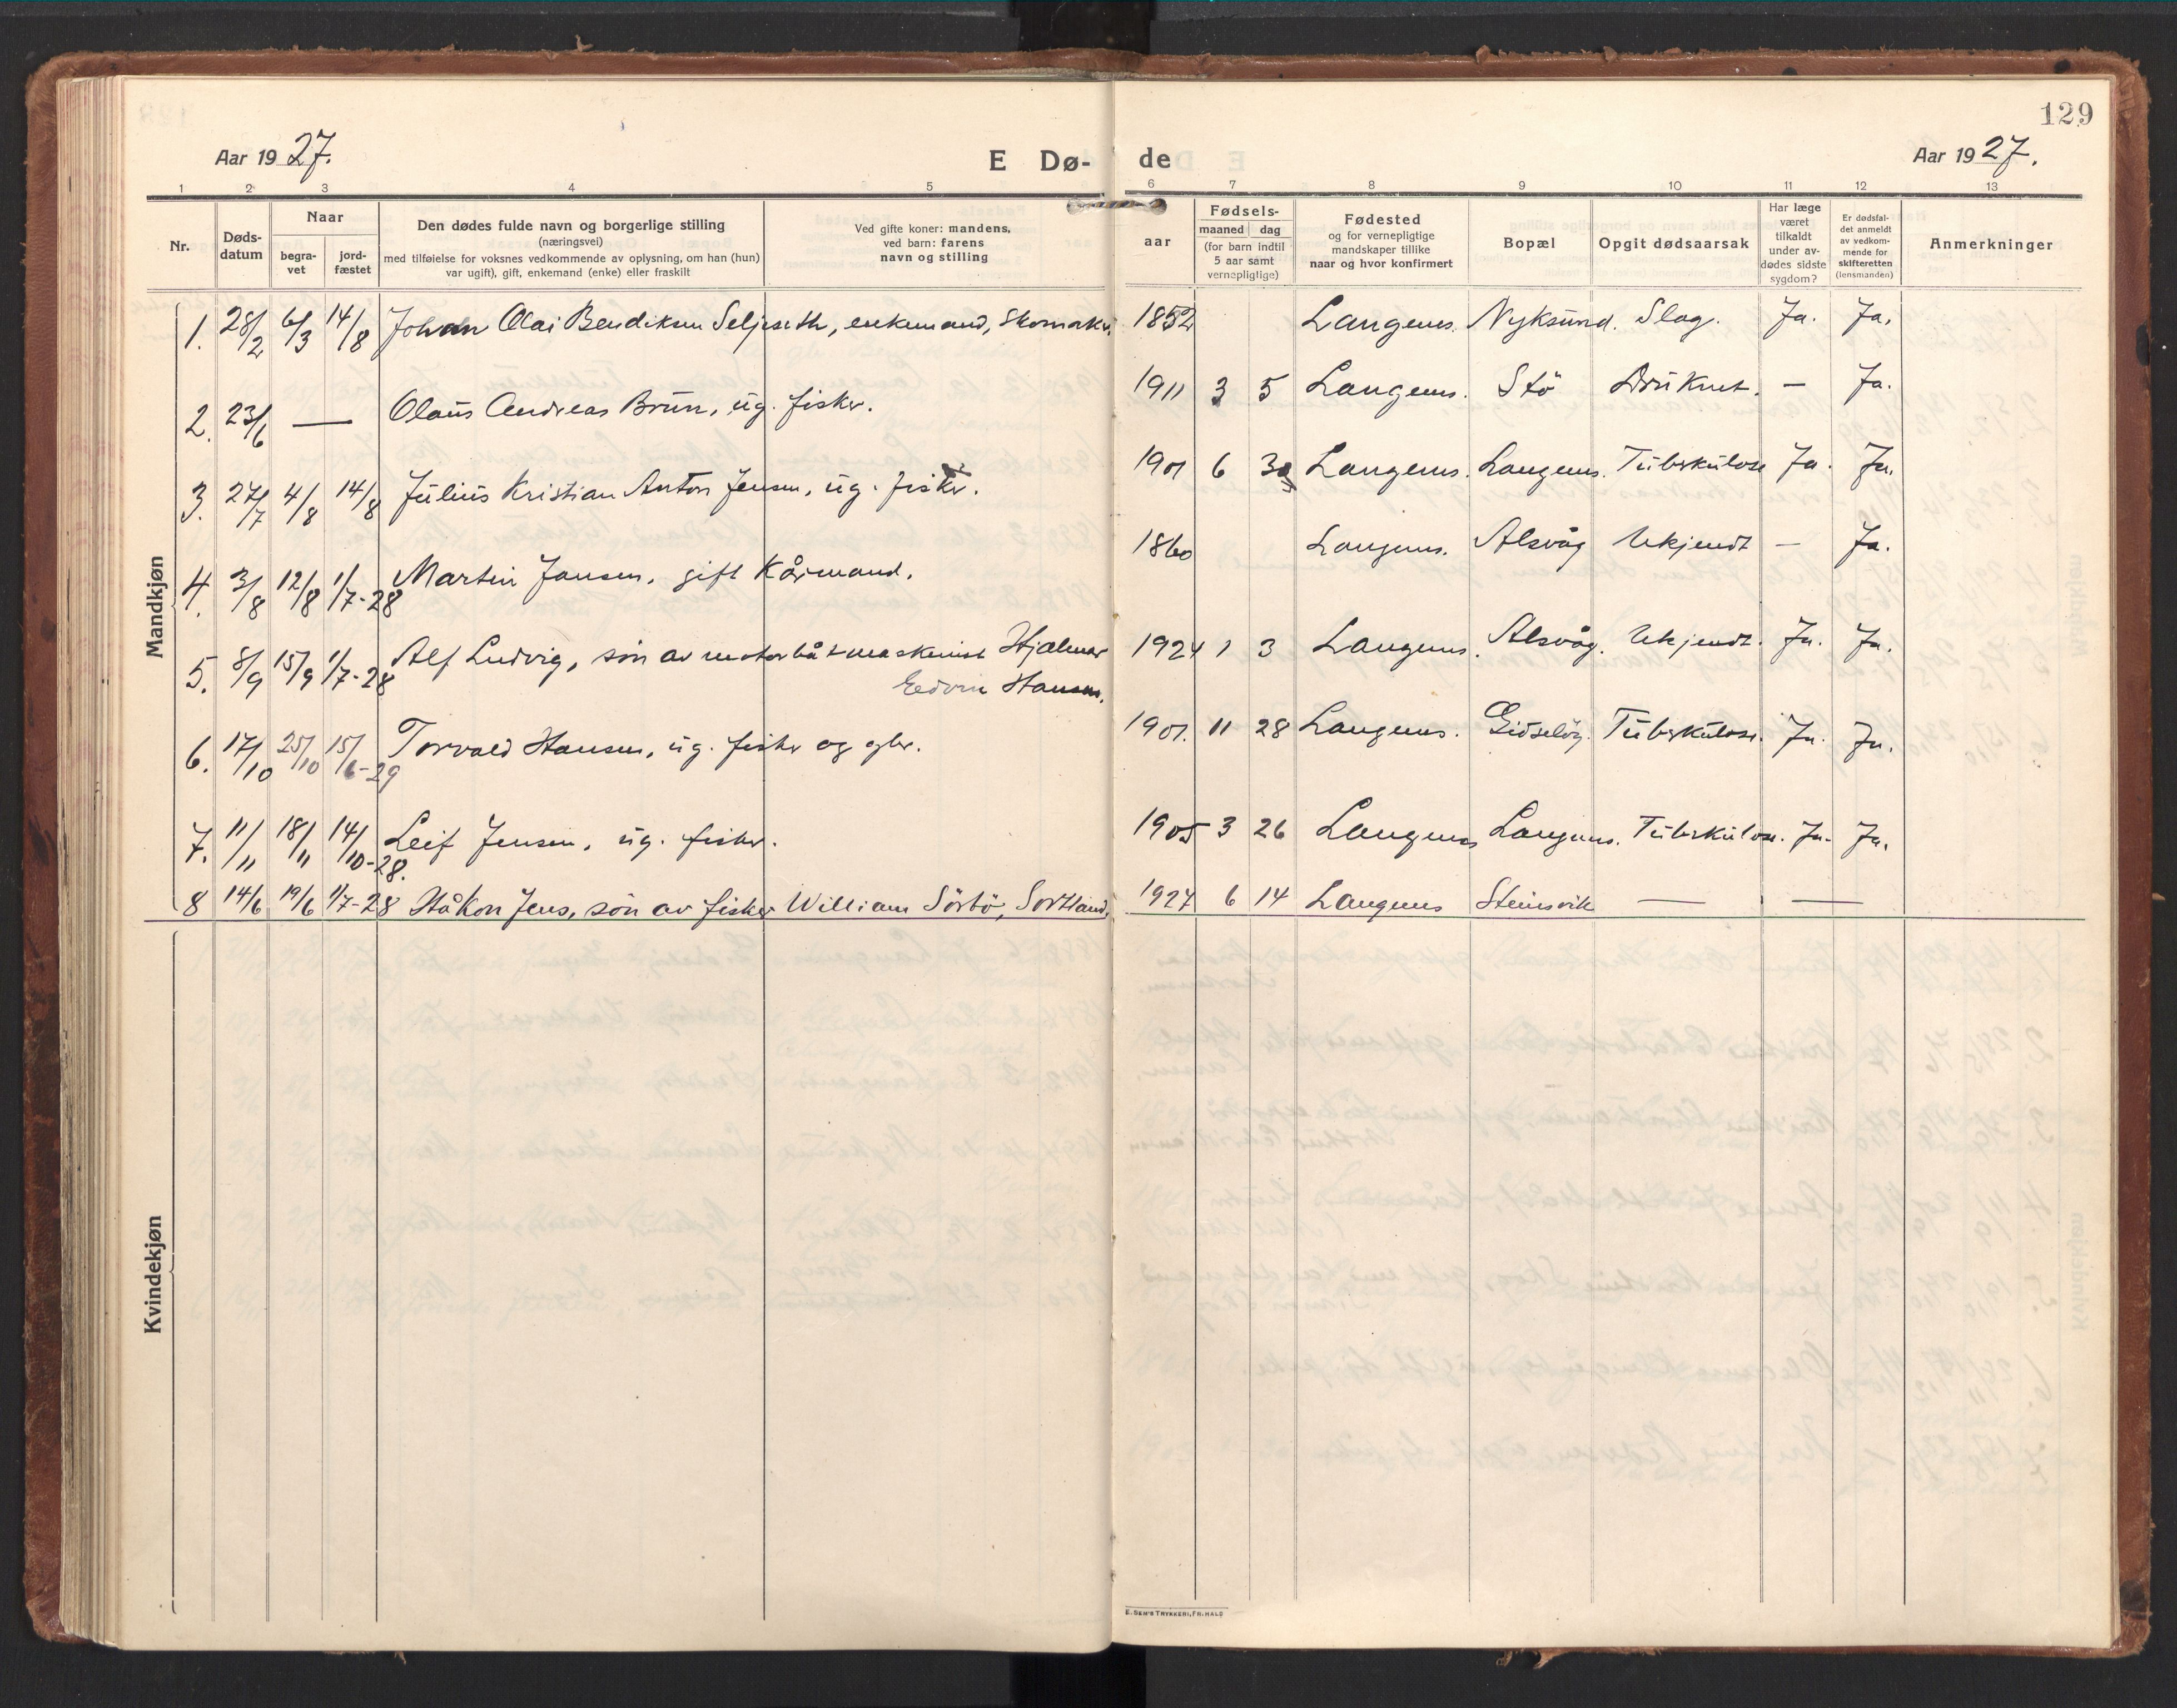 129
Aar 1927.
E Dø-
de
Aar 1927.
1 2 3 4 5 6 7 8 9 10 11 12 13
Nr.
Døds-
datum
Naar
begra-
vet
jord-
fæstet
Den dødes fulde navn og borgerlige stilling
(næringsvei)
med tilføielse for voksnes vedkommende av oplysning, om han (hun)
var ugift), gift, enkemand (enke) eller fraskilt
Ved gifte koner: mandens,
ved barn: farens
navn og stilling
aar
Fødsels-
maaned dag
(for barn indtil
5 aar samt
vernepligtige)
Fødested
og for vernepligtige
mandskaper tillike
naar og hvor konfirmert
Bopæl
Opgit dødsaarsak
Har læge
været
tilkaldt
under av-
dødes sidste
sygdom?
Er dødsfal-
det anmeldt
av vedkom-
mende for
skifteretten
(lensmanden)
Anmerkninger
Mandkjøn
1. 28/2 6/3 14/8 Johan Olai Bendiksen Seljeseth, enkemand, Skomaker. 1852 Langenes. Nyksund. Slag. Ja. Ja.
2. 23/6 — Olaus Andreas Brun, ug. fisker. 1911 3 5 Langenes. Stö Druknet. — Ja.
3. 27/7 4/8 14/8 Julius Kristian Anton Jensen, ug. fisker. 1901 6 30 Langenes. Langenes. Tuberkulose Ja. Ja.
4. 3/8 12/8 1/7-28 Martin Jansen, gift Kårmand. 1860 Langenes. Alsvåg Ukjendt — Ja.
5. 8/9 15/9 1/7-28 Alf Ludvig, sön av motorbåtmaskinist Hjalmar 1924 1 3 Langenes. Alsvåg. Ukjendt. Ja. Ja.
Edvin Hansen.
6. 17/10 25/10 15/6-29 Torvald Hansen, ug. fisker og gbr. 1901. 11 28 Langenes. Gidselöy. Tuberkulose. Ja. Ja.
7. 11/11 18/11 14/10-28. Leif Jensen, ug. fisker. 1905 3 26 Langenes Langenes. Tuberkulose. Ja. Ja.
8 14/6 19/6 1/7-28 Håkon Jens, sön av fisker William Sörbö, Sortland, 1927 6 14 Langenes Steinsvik — —
Kvindekjøn
E. SEM'S TRYKKERI, FR.HALD